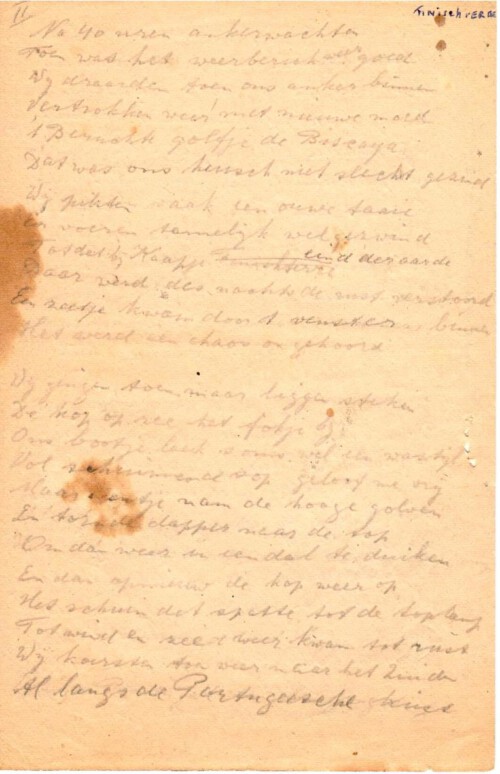 II
Finisch terde
Na 40 uren ankerwachten
Toen was het weerbericht weer goed
Wij draaiden toen ons anker binnen
Vertrokken weer met nieuwe moed
't Beruchte golfje de Biscaya
Dat was ons heusch niet slecht gezind
Wij pikten vaak een ouwe taaie
En voeren tamelijk wel gezwind
Totdat bij Kaapje eind der aarde
Daar werd des nachts de rust verstoord
Een zeetje kwam door 't venster binnen
Het werd een chaos ongehoord
Wij gingen toen maar liggen steken
De kop op zee, het fokje bij
Ons bootje leek soms wel een wastijl
Vol schuimend sop geloof me vrij
Maar eentje nam de hooge golven
En dapper naar de top
Om dan weer in een dal te duiken
En dan opnieuw de kop weer op
Het schuim dat spatte tot de toplamp
Tot wind en zee weer kwam tot rust
Wij koersten toen weer naar het Zuiden
Al langs de Portugeesche kust